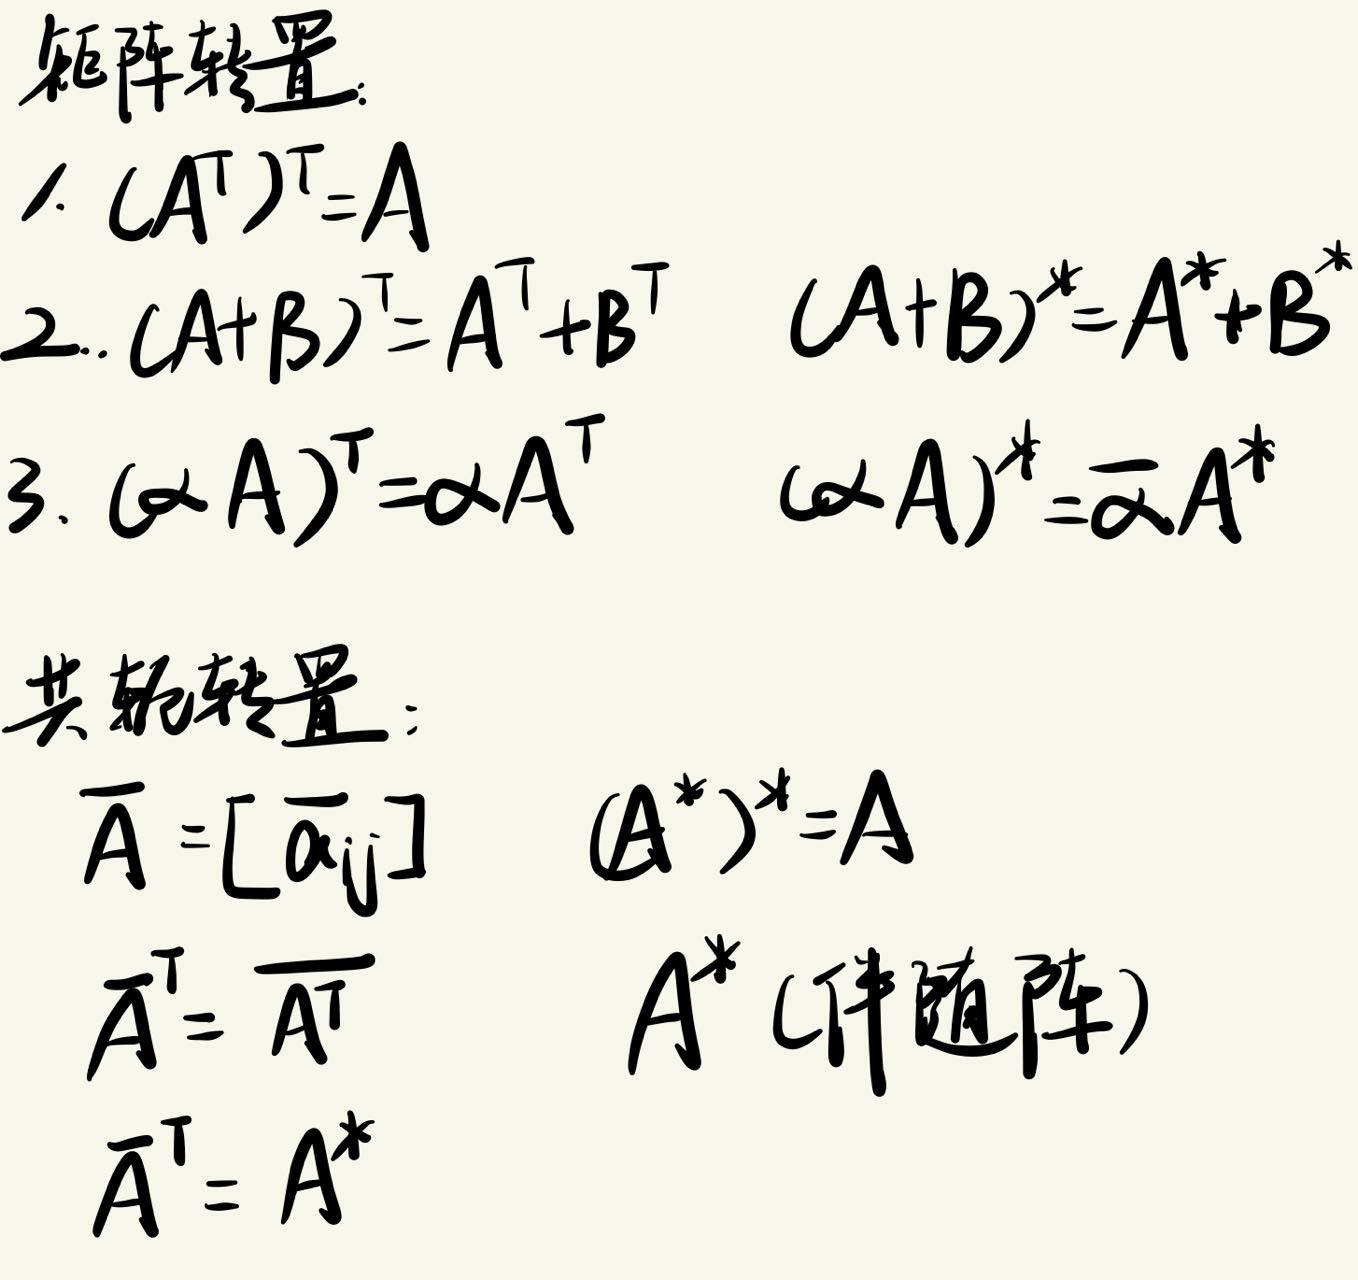 矩阵转置:
1. (Aᵀ)ᵀ=A
2.. (A+B)ᵀ=Aᵀ+Bᵀ (A+B)*=A*+B*
3. (αA)ᵀ=αAᵀ (αA)*=α̅A*
共轭转置:
A̅=[a̅ᵢⱼ] (A*)*=A
A̅ᵀ=\overline{Aᵀ} A*(伴随阵)
A̅ᵀ=A*